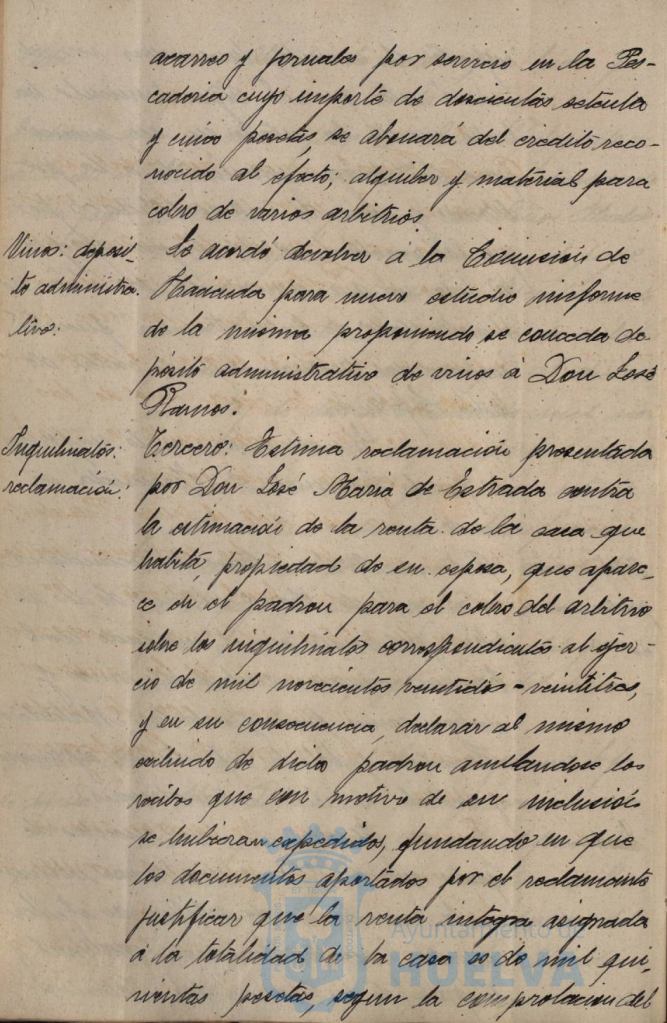 acarreo y jornales por servicio en la Pes-
caderia cuyo importe de doscientas setenta
y cinco pesetas, se abonará del credito reco-
nocido al efecto; alquiler y material para
cobro de varios arbitrios.
Vinos: deposi-
to administra-
tivo:
Se acordó devolver á la Comisión de
Hacienda para nuevo estudio informe
de la misma proponiendo se conceda de-
pósito administrativo de vinos á Don José
Ramos.
Inquilinatos:
reclamación:
Tercero: Estima reclamación presentada
por Don José Maria de Estrada contra
la estimación de la renta de la casa que
habita, propiedad de su esposa, que apare-
ce en el padron para el cobro del arbitrio
sobre los inquilinatos correspondientes al ejer-
cio de mil novecientos veintidós-veintitres,
y en su consecuencia, declarar al mismo
excluido de dicho padron anulandose los
recibos que con motivo de su inclusión
se hubieran expedido, fundando en que
los documentos aportados por el reclamante
justificar que la renta integra asignada
á la totalidad de la casa es de mil qui-
nientas pesetas, segun la comprobacion del
Ayuntamiento
HUELVA